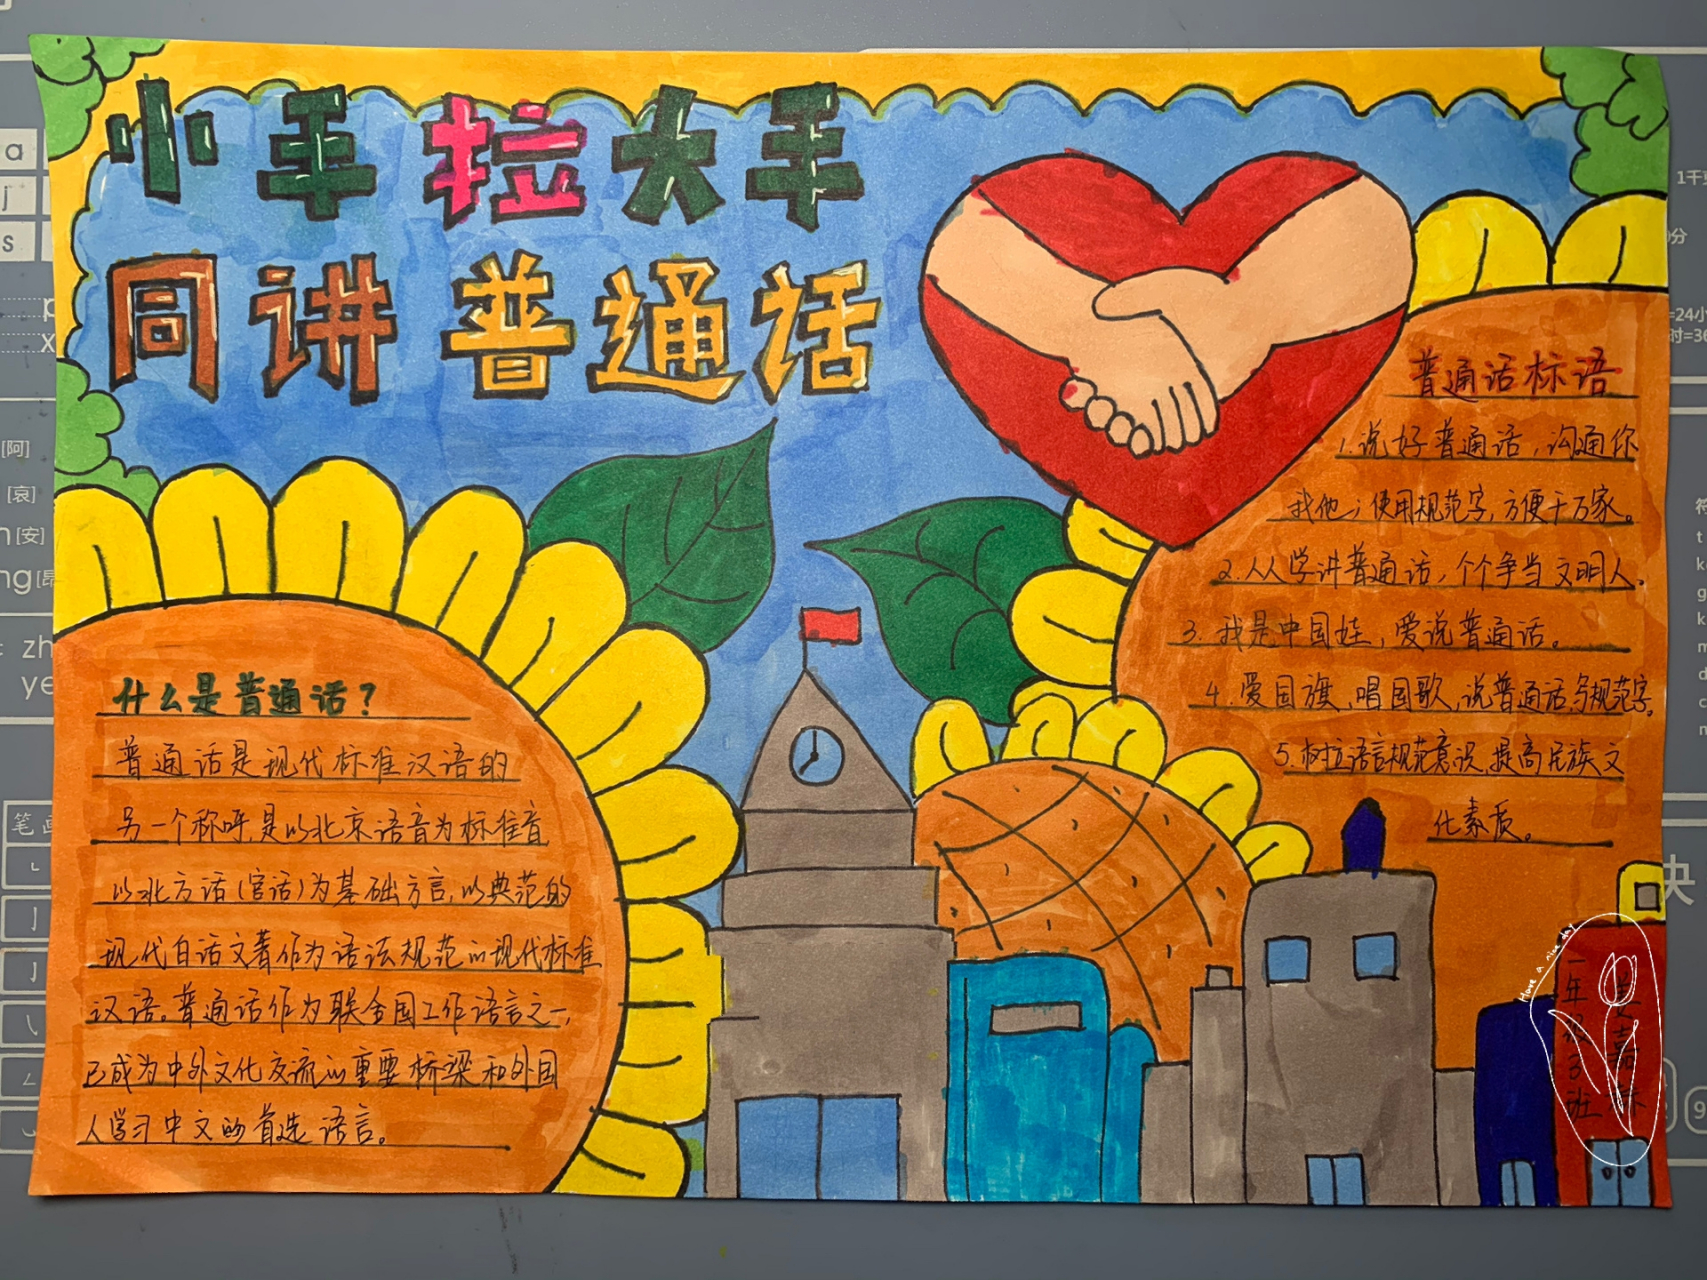 小手拉大手
同讲普通话
什么是普通话？
普通话是现代标准汉语的
另一个称呼，是以北京语音为标准音
以北方话（官话）为基础方言，以典范的
现代白话文著作为语法规范的现代标准
汉语。普通话作为联合国工作语言之一，
已成为中外文化交流的重要桥梁和外国
人学习中文的首选语言。
普通话标语
1.说好普通话，沟通你
我他；使用规范字，方便千万家。
2.人人学讲普通话，个个争当文明人。
3.我是中国娃，爱说普通话。
4.爱国旗，唱国歌，说普通话，写规范字。
5.树立语言规范意识，提高民族文
化素质。
一年级3班
Have a nice day
a
s
p
x
[阿]
[哀]
[安]
zh
ye